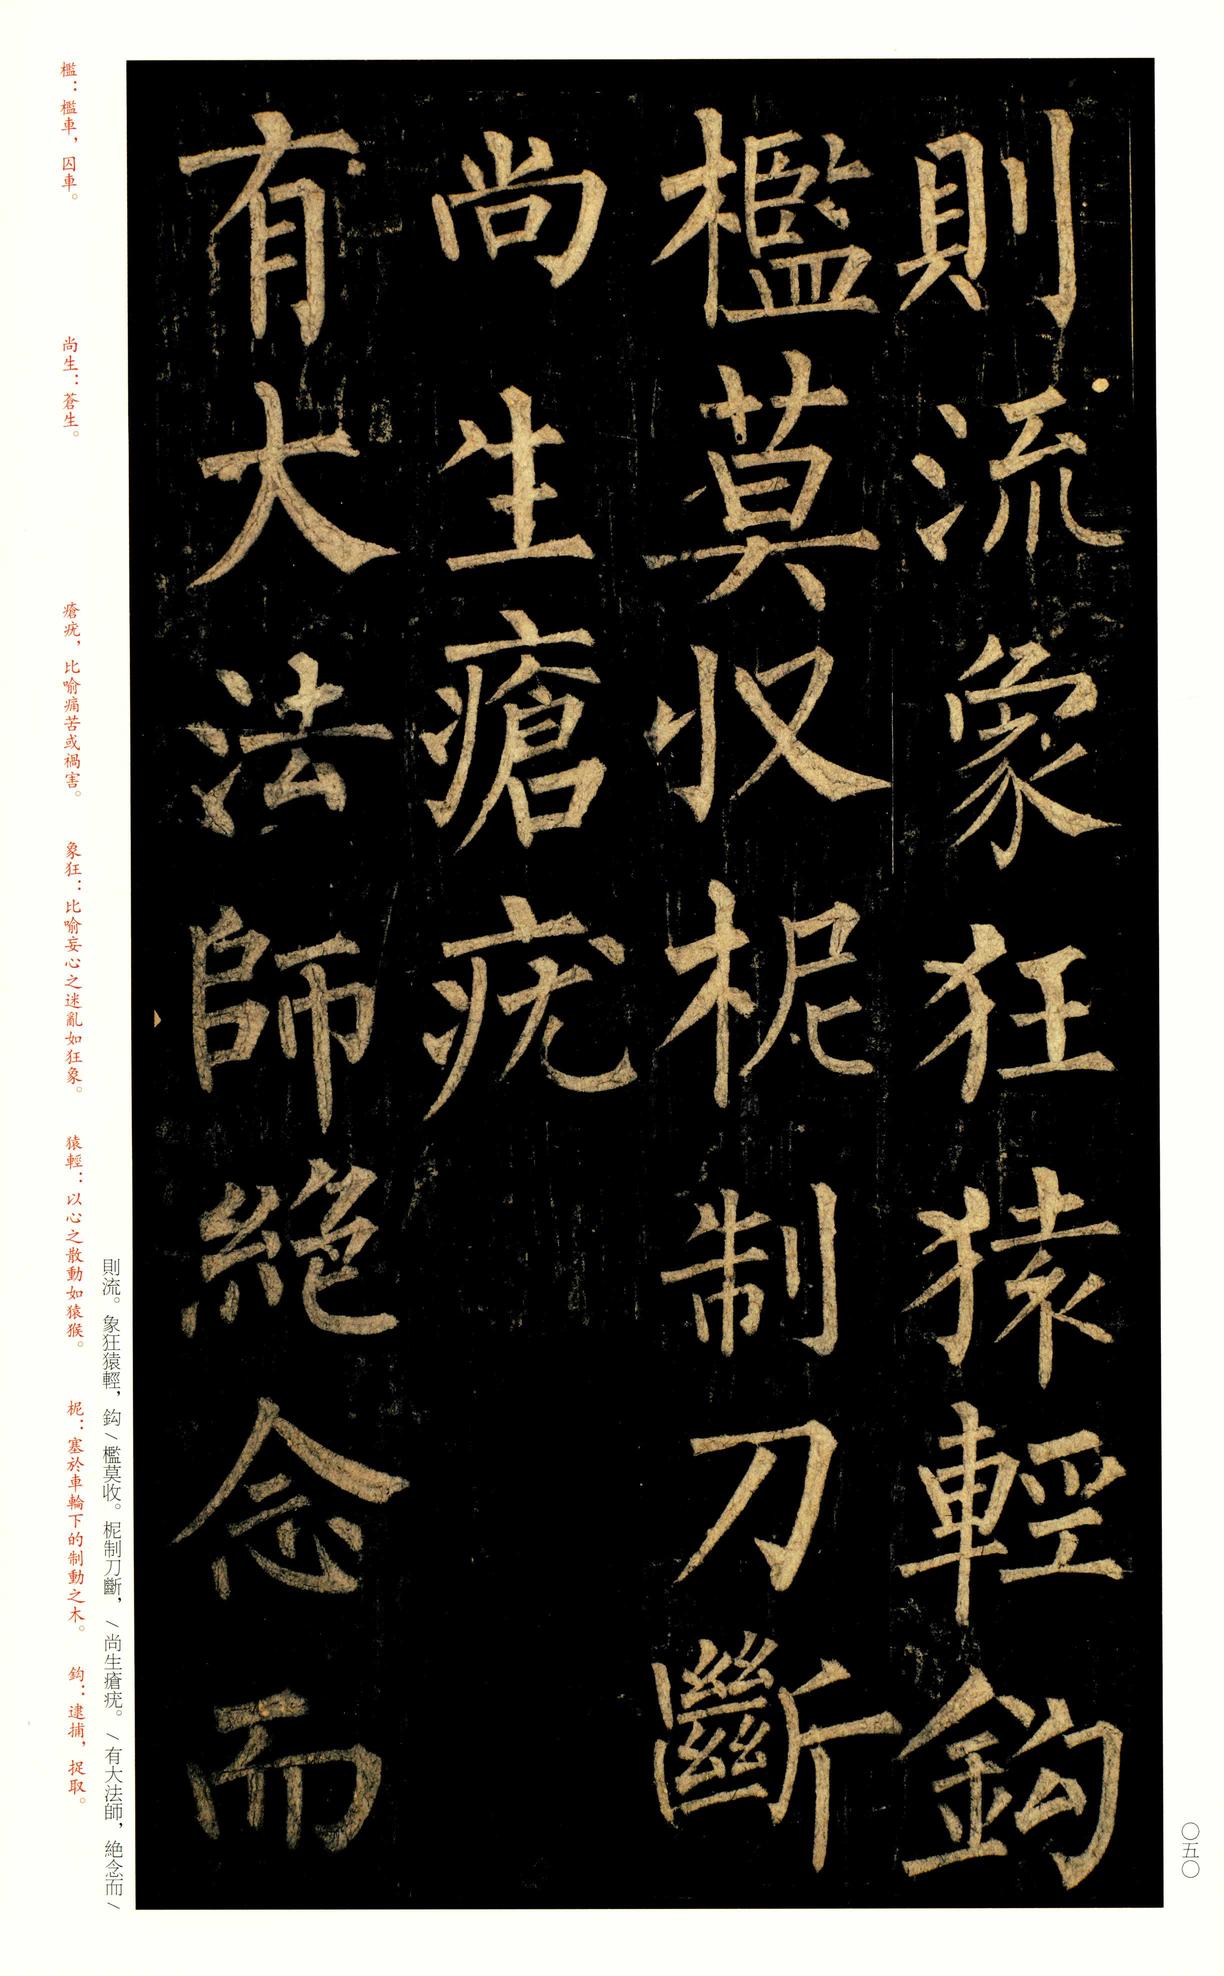 則流象狂猿輕鈎
檻莫收柅制刀斷
尚生瘡疣
有大法師絶念而
則流。象狂猿輕，鈎\檻莫收。柅制刀斷，\尚生瘡疣。\有大法師，絶念而\
檻：檻車，囚車。 尚生：蒼生。 瘡疣，比喻痛苦或禍害。 象狂：比喻妄心之迷亂如狂象。 猿輕：以心之散動如猿猴。 柅：塞於車輪下的制動之木。 鈎：逮捕，捉取。
〇五〇